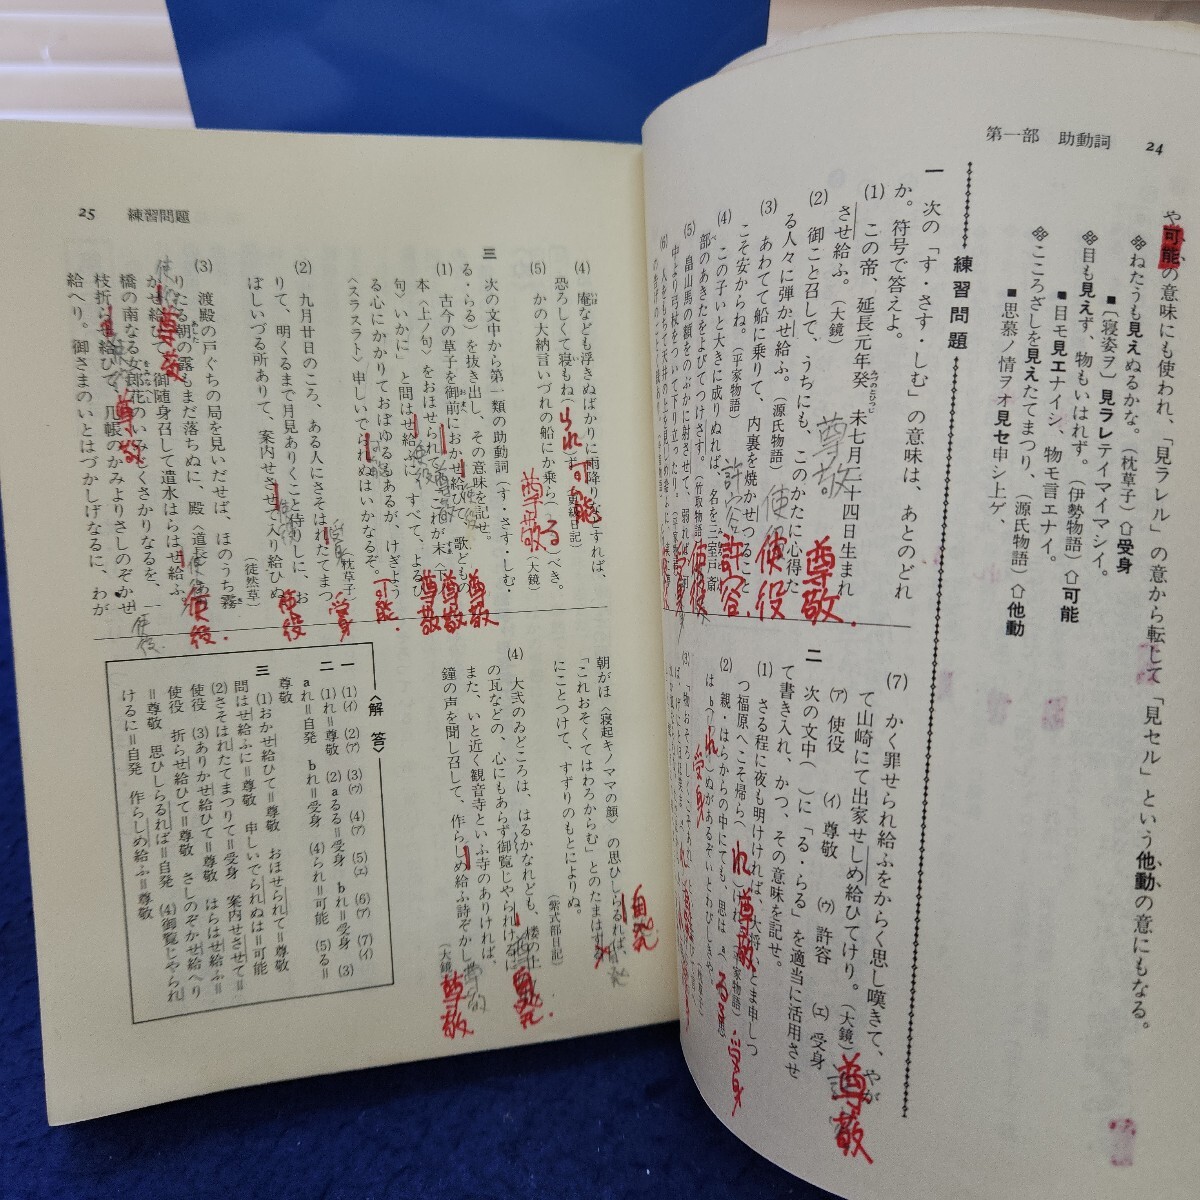 第一部　助動詞　24
や可能の意味にも使われ、「見ラレル」の意から転じて「見セル」という他動の意にもなる。
※ねたうも見えぬるかな。（枕草子）⇦受身
■〔寝姿ヲ〕見ラレテイマイマシイ。
※目も見えず、物もいはれず。（伊勢物語）⇦可能
■目モ見エナイシ、物モ言エナイ。
※こころざしを見えたてまつり、（源氏物語）⇦他動
■思慕ノ情ヲオ見セ申シ上ゲ、
練習問題
一　次の「す・さす・しむ」の意味は、あとのどれ
か。符号で答えよ。
(1)　この帝、延長元年癸未七月二十四日生まれ
させ給ふ。（大鏡）
尊敬
尊敬.
(2)　御こと召して、うちにも、このかたに心得た
る人々に弾かせ給ふ。（源氏物語）
使役
使役
(3)　あわてて船に乗りて、内裏を焼かせつること
こそ安からね。（平家物語）
許容
許容.
(4)　この子いと大きに成りぬれば、名を三室戸斎
部のあきたをよびてつけさす。（竹取物語）
使役
(5)　畠山馬の額をのぶかに射させ
中より弓杖をついて下り立つたり。
(7)　かく罪せられ給ふをからく思し嘆きて、やが
て山崎にて出家せしめ給ひてけり。（大鏡）
尊敬
(ア)　使役　(イ)　尊敬　(ウ)　許容　(エ)　受身
二　次の文中（　）に「る・らる」を適当に活用させ
て書き入れ、かつ、その意味を記せ。
(1)　さる程に夜も明ければ、大将
つ福原へこそ帰ら（れ
尊敬
(2)　親・はらからの中にても、思は
受身
受身
25　練習問題
(4)　庵なども浮きぬばかりに雨降りなどすれば、
恐ろしくて寝もね（られ）ず
可能
(5)　かの大納言いづれの船にか乗ら（る）べき。
（大鏡）
尊敬
三　次の文中から第一類の助動詞（す・さす・しむ・
る・らる）を抜き出し、その意味を記せ。
(1)　古今の草子を御前におかせ給ひて、歌どもの
本〈上ノ句〉をおほせられて、「これが末〈下ノ
句〉いかに」と問はせ給ふに、すべて、よるひ
る心にかかりておぼゆるもあるが、けぎよう
〈スラスラト〉申しいでられぬはいかなるぞ。
（枕草子）
尊敬
尊敬
尊敬
可能.
(2)　九月廿日のころ、ある人にさそはれたてまつ
りて、明くるまで月見ありくこと侍りしに、お
ぼしいづる所ありて、案内せさせて入り給ひぬ。
（徒然草）
受身
使役
(3)　渡殿の戸ぐちの局を見いだせば、ほのうち霧
りたる朝の露もまだ落ちぬに、殿〈道長〉あ
りかせ給ひて、御随身召して遣水はらはせ給ふ。
橋の南なる女郎花のいみじくさかりなるを、一
枝折らせ給ひて、几帳のかみよりさしのぞかせ
給へり。御さまのいとはづかしげなるに、わが
使役.
尊敬
尊敬
使役.
朝がほ〈寝起キノママの顔〉の思ひしらるれば、
「これおそくてはわろからむ」とのたまはする
にことつけて、すずりのもとによりぬ。
（紫式部日記）
自発
(4)　大弐のゐどころは、はるかなれども、楼の上
の瓦などの、心にもあらず御覧じやられけるに、
また、いと近く観音寺といふ寺のありければ、
鐘の声を聞し召して、作らしめ給ふ詩ぞかし。
（大鏡）
自発.
尊敬
尊敬.
〈解答〉
一　(1)(イ)　(2)(ア)　(3)(ウ)　(4)(ア)　(5)(エ)　(6)(ア)　(7)(イ)
二　(1)れ＝尊敬　(2)aる＝受身　bれ＝受身　(3)
aれ＝自発　bれ＝受身　(4)られ＝可能　(5)る＝
尊敬
三　(1)おかせ給ひて＝尊敬　おほせられて＝尊敬
問はせ給ふに＝尊敬　申しいでられぬは＝可能
(2)さそはれたてまつりて＝受身　案内せさせて＝
使役　(3)ありかせ給ひて＝尊敬　はらはせ給ふ＝
使役　折らせ給ひて＝尊敬　さしのぞかせ給へり
＝尊敬　思ひしらるれば＝自発　(4)御覧じやられ
けるに＝自発　作らしめ給ふ＝尊敬